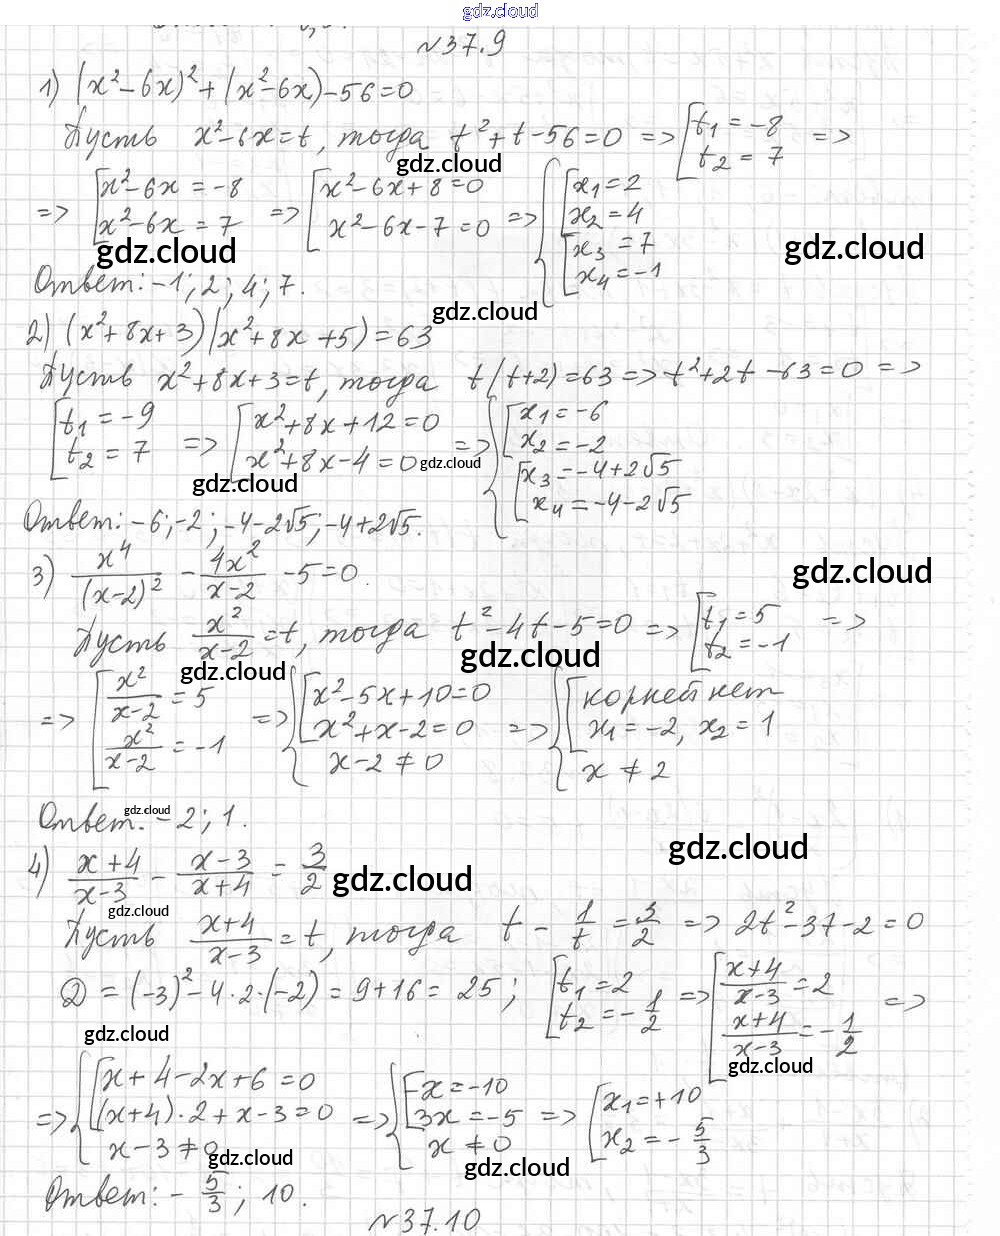 gdz.cloud
№37.9
1) (x²-6x)²+(x²-6x)-56=0
Пусть x²-6x=t, тогда t²+t-56=0 => [t₁=-8 t₂=7 =>
gdz.cloud
=> [x²-6x=-8 x²-6x=7 => [x²-6x+8=0 x²-6x-7=0 => {[x₁=2 x₂=4 [x₃=7 x₄=-1
gdz.cloud gdz.cloud
Ответ: -1; 2; 4; 7.
gdz.cloud
2) (x²+8x+3)(x²+8x+5)=63
Пусть x²+8x+3=t, тогда t(t+2)=63 => t²+2t-63=0 =>
[t₁=-9 t₂=7 => [x²+8x+12=0 x²+8x-4=0 => {[x₁=-6 x₂=-2 [x₃=-4+2√5 x₄=-4-2√5
gdz.cloud gdz.cloud
Ответ: -6; -2; -4-2√5; -4+2√5.
3) x⁴/(x-2)² - 4x²/x-2 - 5=0.
gdz.cloud
Пусть x²/x-2=t, тогда t²-4t-5=0 => [t₁=5 t₂=-1 =>
gdz.cloud gdz.cloud
=> [x²/x-2=5 x²/x-2=-1 => {[x²-5x+10=0 x²+x-2=0 x-2≠0 => {[корней нет x₁=-2, x₂=1 x≠2
gdz.cloud
Ответ: -2; 1.
4) x+4/x-3 - x-3/x+4 = 3/2
gdz.cloud gdz.cloud
gdz.cloud
Пусть x+4/x-3=t, тогда t - 1/t = 3/2 => 2t²-3t-2=0
D=(-3)²-4·2·(-2)=9+16=25; [t₁=2 t₂=-1/2 => [x+4/x-3=2 x+4/x-3=-1/2 =>
gdz.cloud gdz.cloud
=> {[x+4-2x+6=0 (x+4)·2+x-3=0 x-3≠0 => {[-x=-10 3x=-5 x≠0 => [x₁=+10 x₂=-5/3
gdz.cloud gdz.cloud
Ответ: -5/3; 10.
№37.10